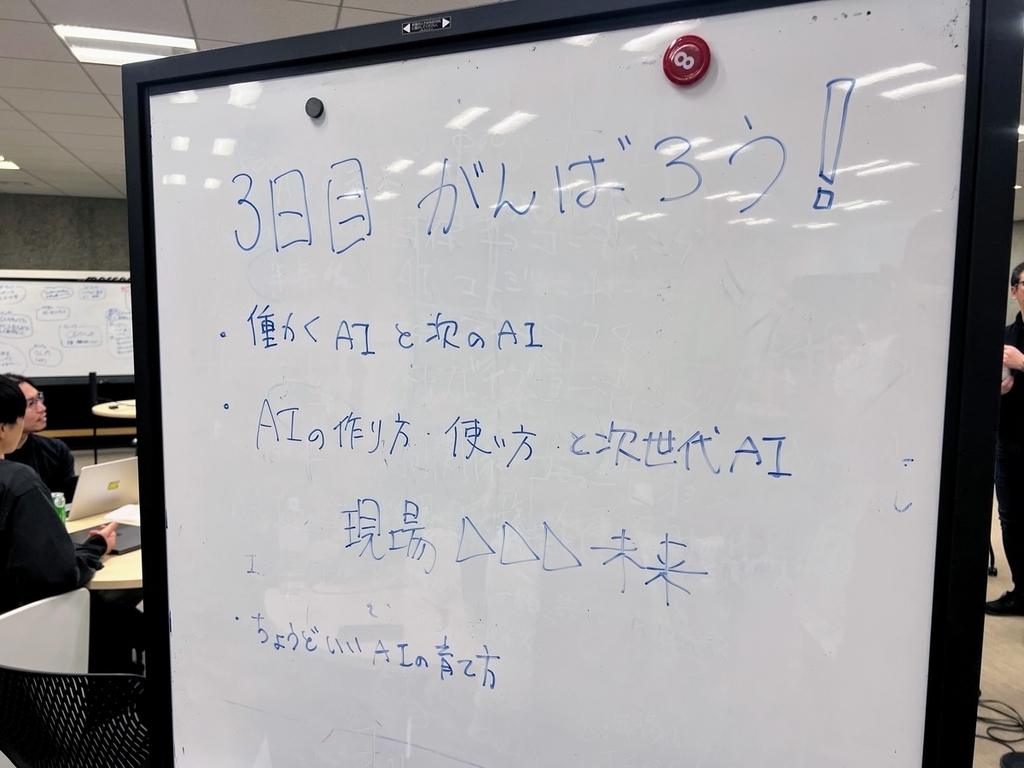 3日目 がんばろう!
・働かくAIと次のAI
・AIの作り方・使い方・と次世代AI
現場 △△△ 未来
・ちょうどいいAIの育て方